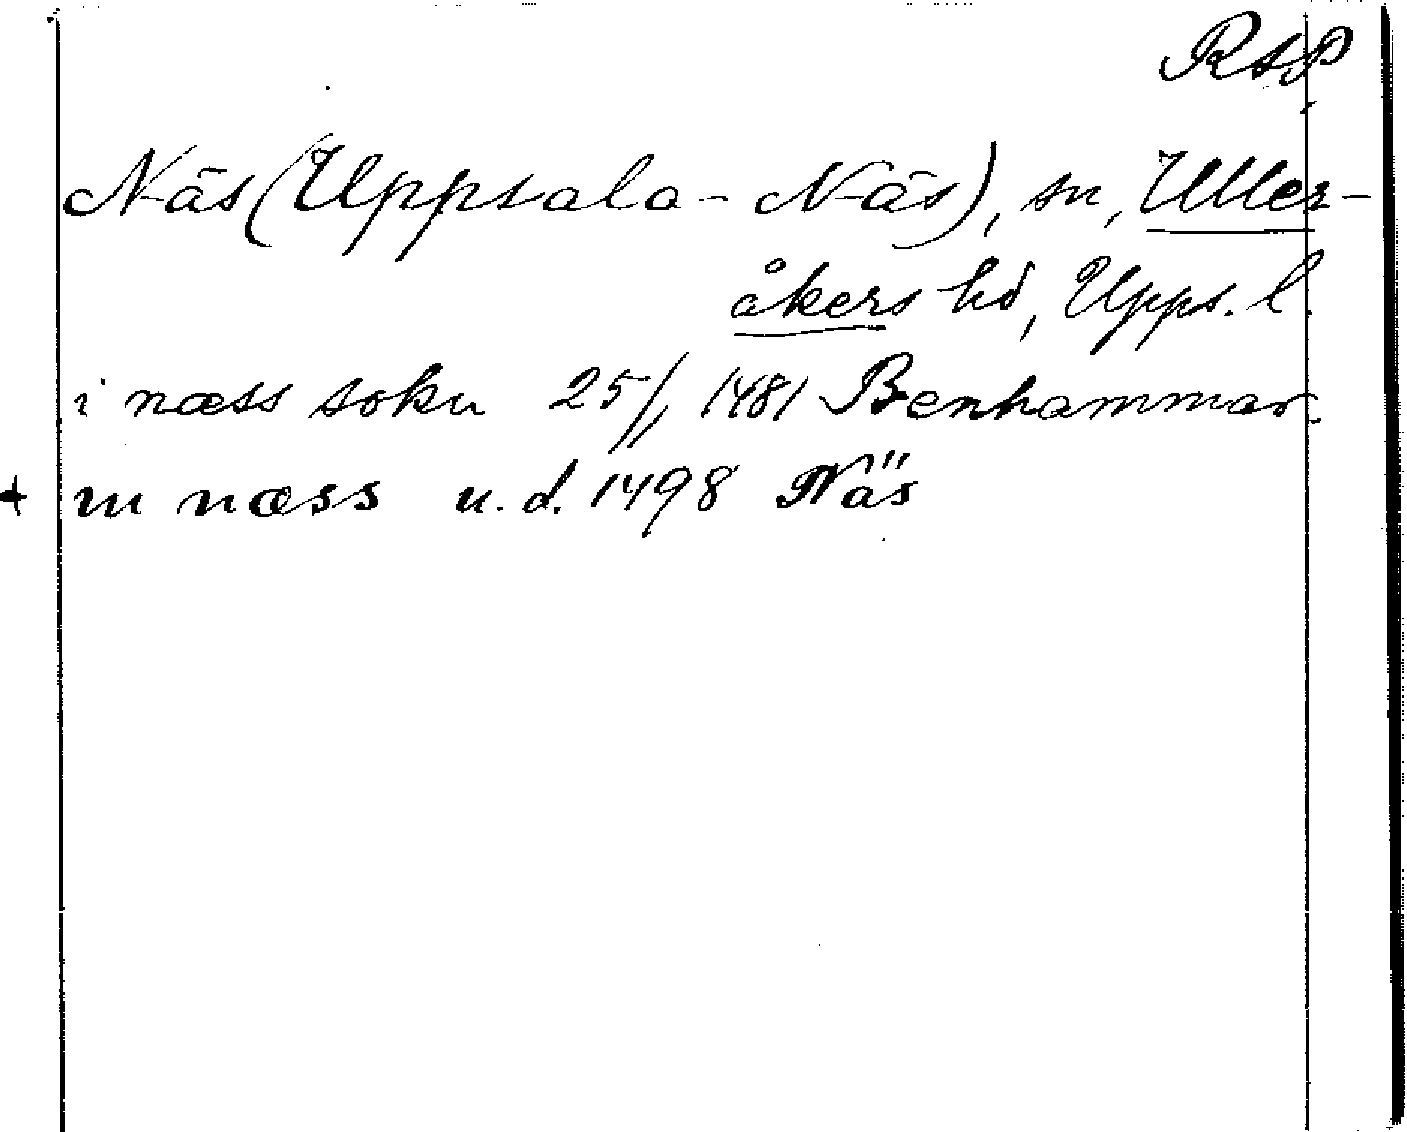 RAP
Näs (Uppsala-Näs), sn, Uller-
åkers hd, Upps. l.
i næss sokn 25/11 1481 Benhammar
+ in næss u.d. 1498 Näs